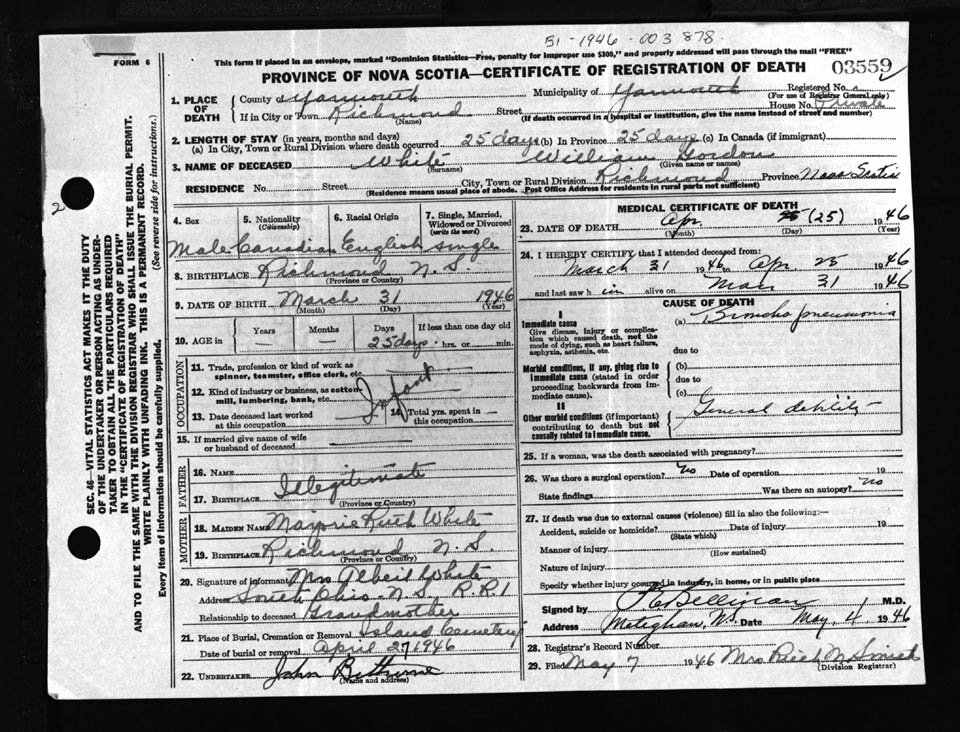 51-1946-003878.
FORM 6
This form if placed in an envelope, marked "Dominion Statistics—Free, penalty for improper use $300," and properly addressed will pass through the mail "FREE"
PROVINCE OF NOVA SCOTIA—CERTIFICATE OF REGISTRATION OF DEATH
03559
Registered No.
(For use of Registrar General only)
1. PLACE OF DEATH
County of Yarmouth Municipality of Yarmouth
If in City or Town Richmond Street House No. Private
(Name) (If death occurred in a hospital or institution, give the name instead of street and number)
2. LENGTH OF STAY (in years, months and days)
(a) In City, Town or Rural Division where death occurred 25 days (b) In Province 25 days (c) In Canada (if immigrant)
3. NAME OF DECEASED White William Gordon
(Surname) (Given name or names)
RESIDENCE No. Street City, Town or Rural Division Richmond Province Nova Scotia
(Residence means usual place of abode. Post Office Address for residents in rural parts not sufficient)
4. Sex 5. Nationality (Citizenship) 6. Racial Origin 7. Single, Married, Widowed or Divorced (write the word)
Male Canadian English single
8. BIRTHPLACE Richmond N.S.
(Province or Country)
9. DATE OF BIRTH March 31 1946
(Month) (Day) (Year)
10. AGE in Years Months Days If less than one day old
— — 25 days. hrs. or min.
OCCUPATION
11. Trade, profession or kind of work as spinner, teamster, office clerk, etc.
12. Kind of industry or business, as cotton mill, lumbering, bank, etc.
Infant
13. Date deceased last worked at this occupation 14. Total yrs. spent in this occupation —
15. If married give name of wife or husband of deceased
FATHER
16. NAME Illegitimate
17. BIRTHPLACE
(Province or Country)
MOTHER
18. MAIDEN NAME Marjorie Ruth White
19. BIRTHPLACE Richmond N.S.
(Province or Country)
20. Signature of informant Mrs Albert White
Address South Ohio N.S. R.R.1
Relationship to deceased Grandmother
21. Place of Burial, Cremation or Removal Island Cemetery
Date of burial or removal April 27 1946
22. UNDERTAKER John Bethune
(Name and address)
MEDICAL CERTIFICATE OF DEATH
23. DATE OF DEATH Apr 25 (25) 1946
(Month) (Day) (Year)
24. I HEREBY CERTIFY that I attended deceased from:
March 31 1946 to Apr. 25 1946
and last saw h im alive on Mar 31 1946
CAUSE OF DEATH
I
Immediate cause (a) Broncho pneumonia
Give disease, injury or complication which caused death, not the mode of dying, such as heart failure, asphyxia, asthenia, etc.
due to
Morbid conditions, if any, giving rise to immediate cause (stated in order proceeding backwards from immediate cause).
(b)
due to
(c)
II
Other morbid conditions (if important) contributing to death but not causally related to immediate cause.
General debility
25. If a woman, was the death associated with pregnancy?
26. Was there a surgical operation? No Date of operation 19
State findings Was there an autopsy? No
27. If death was due to external causes (violence) fill in also the following:—
Accident, suicide or homicide? Date of injury 19
(State which)
Manner of injury
(How sustained)
Nature of injury
Specify whether injury occurred in industry, in home, or in public place
Signed by M.D.
Address Meteghan, N.S. Date May 4 1946
28. Registrar's Record Number
29. Filed May 7 1946 Mrs
(Division Registrar)
SEC. 46—VITAL STATISTICS ACT MAKES IT THE DUTY
OF THE UNDERTAKER OR PERSON ACTING AS UNDER-
TAKER TO OBTAIN ALL THE PARTICULARS REQUIRED
IN THE "CERTIFICATE OF REGISTRATION OF DEATH"
AND TO FILE THE SAME WITH THE DIVISION REGISTRAR WHO SHALL ISSUE THE BURIAL PERMIT.
WRITE PLAINLY WITH UNFADING INK. THIS IS A PERMANENT RECORD.
Every item of information should be carefully supplied. (See reverse side for instructions.)
2